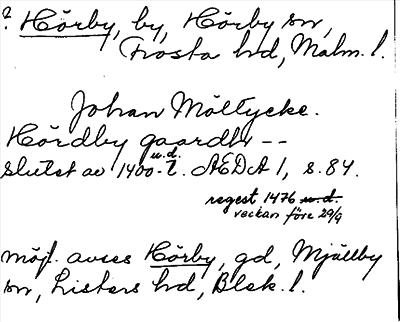 ? Hörby, by, Hörby sn,
Frosta hd, Malm. l.
Johan Möltycke.
Hördby gaardh --
slutet av 1400-t. u.d. ÆDA 1, s. 84.
regest 1476 u.d.
veckan före 29/9
möjl. avses Hörby, gd, Mjällby
sn, Listers hd, Blek. l.